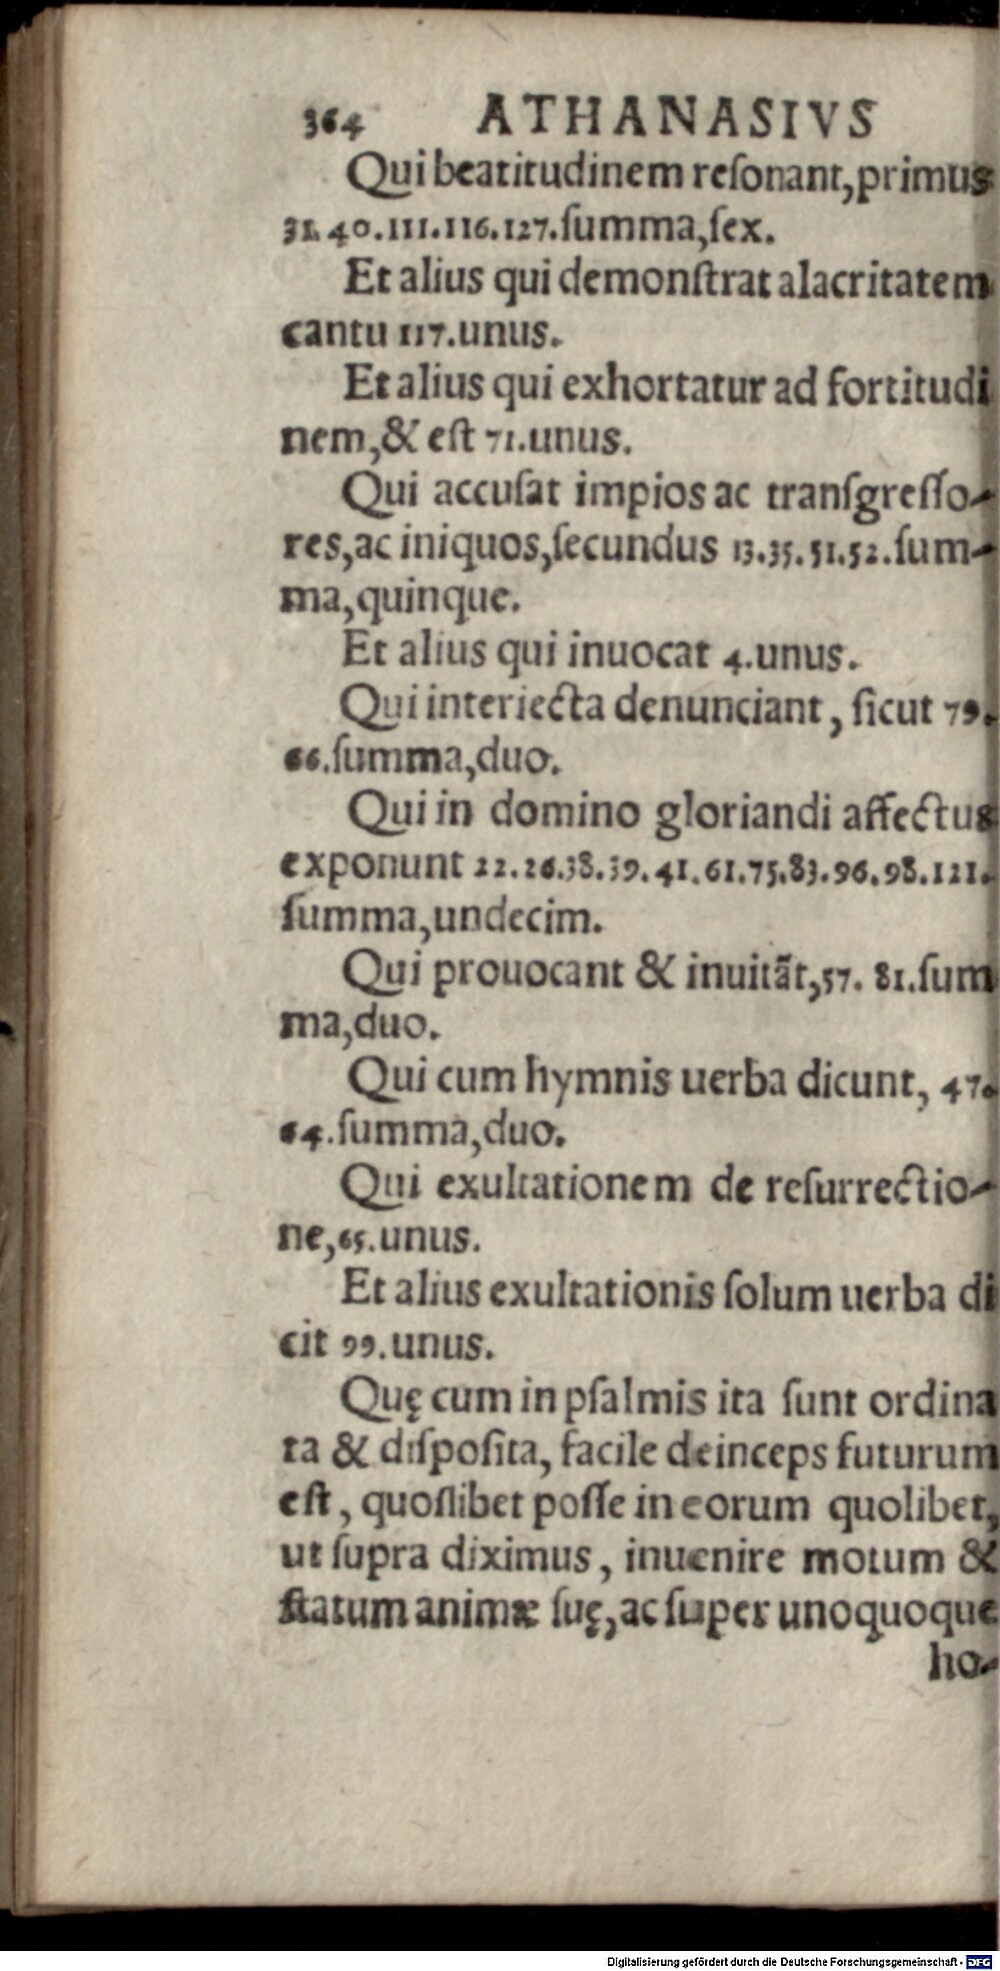 364 ATHANASIVS
Qui beatitudinem reſonant, primus
31. 40. 111. 116. 127. ſumma, ſex.
Et alius qui demonſtrat alacritatem
cantu 117. unus.
Et alius qui exhortatur ad fortitudi
nem, & eſt 71. unus.
Qui accuſat impios ac tranſgreſſo-
res, ac iniquos, ſecundus 13. 35. 51. 52. ſum-
ma, quinque.
Et alius qui inuocat 4. unus.
Qui interiecta denunciant, ſicut 79.
66. ſumma, duo.
Qui in domino gloriandi affectus
exponunt 22. 26. 38. 39. 41. 61. 75. 83. 96. 98. 121.
ſumma, undecim.
Qui prouocant & inuitãt, 57. 81. ſum
ma, duo.
Qui cum hymnis uerba dicunt, 47.
64. ſumma, duo.
Qui exultationem de reſurrectio-
ne, 65. unus.
Et alius exultationis ſolum uerba di
cit 99. unus.
Quę cum in pſalmis ita ſunt ordina
ta & diſpoſita, facile deinceps futurum
eſt, quoſlibet poſſe in eorum quolibet,
ut ſupra diximus, inuenire motum &
ſtatum animæ ſuę, ac ſuper unoquoque
ho-
Digitalisierung gefördert durch die Deutsche Forschungsgemeinschaft - DFG